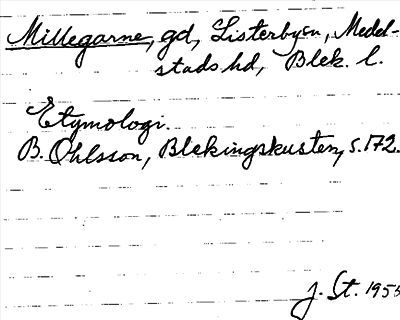 Millegarne, gd, Listerbyån, Medel-
stads hd, Blek. l.
Etymologi.
B. Ohlsson, Blekingskusten, s. 172.
J. St. 1955